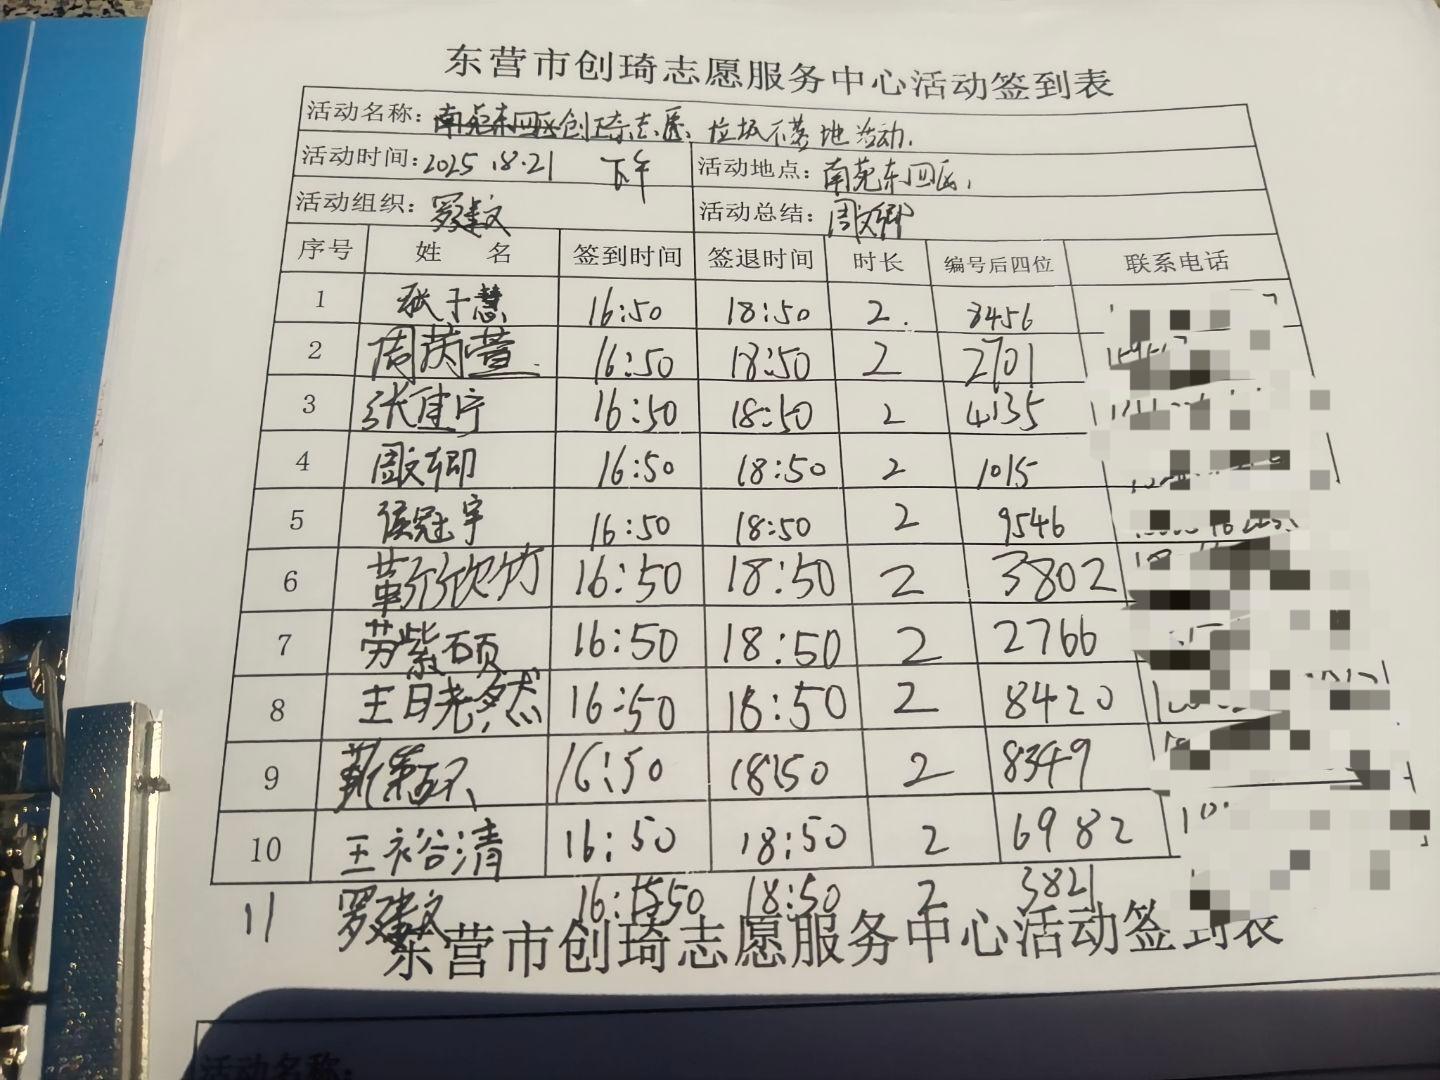 东营市创琦志愿服务中心活动签到表
活动名称: 南莞东四区创琦志愿、垃圾不落地活动.
活动时间: 2025.8.21 下午 活动地点: 南莞东四区,
活动组织: 罗建文 活动总结: 周文卿
序号 姓 名 签到时间 签退时间 时长 编号后四位 联系电话
1 耿于慧 16:50 18:50 2. 8456
2 周芮萱 16:50 18:50 2 2701
3 张佳宁 16:50 18:50 2 4135
4 周文卿 16:50 18:50 2 1015
5 侯冠宇 16:50 18:50 2 9546
6 16:50 18:50 2 3802
7 劳紫硕 16:50 18:50 2 2766
8 王晓然 16:50 18:50 2 8420
9 16:50 18:50 2 8349
10 王裕清 16:50 18:50 2 6982
11 罗建文 16:50 18:50 2 3821
东营市创琦志愿服务中心活动签到表
活动名称: